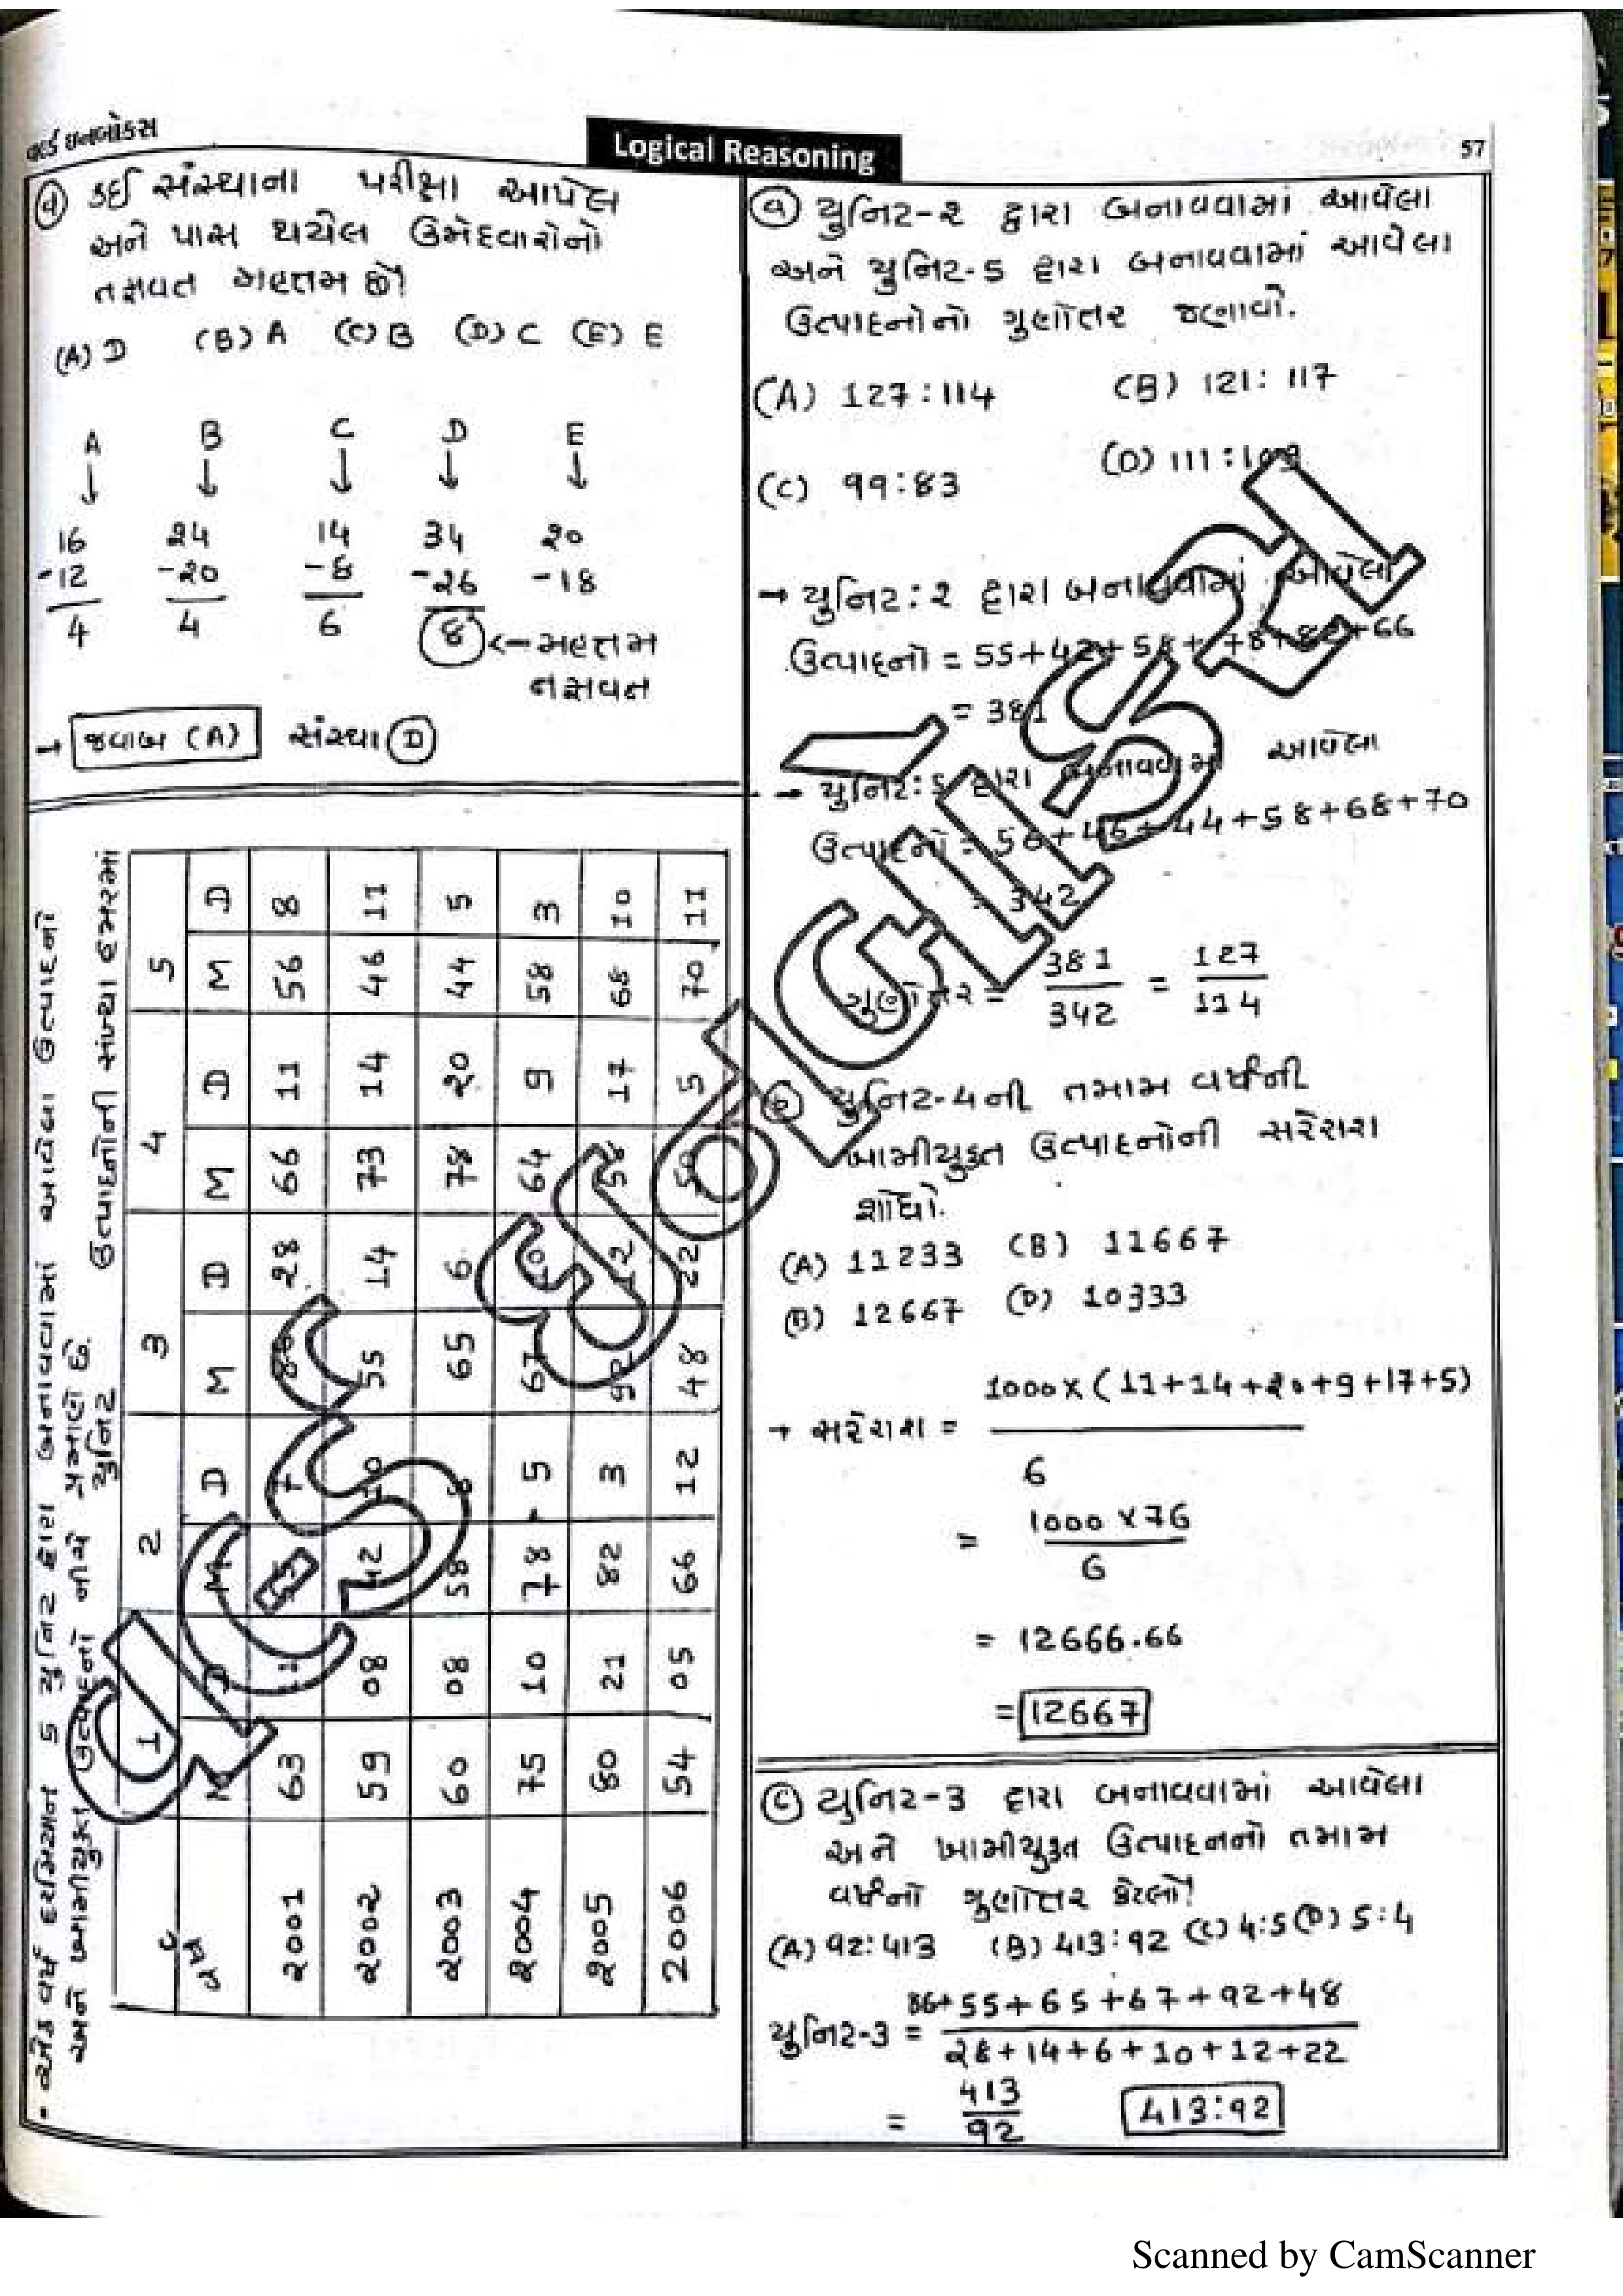 વર્લ્ડ ઇનબોક્સ
Logical Reasoning
57
કઈ સંસ્થાના પરીક્ષા આપેલ
અને પાસ થયેલ ઉમેદવારોનો
તફાવત મહત્તમ છે?
(A) D (B) A (C) B (D) C (E) E
A B C D E
16 24 14 34 20
-12 -20 -8 -26 -18
4 4 6 8 <- મહત્તમ
તફાવત
→ જવાબ (A) સંસ્થા D
• એક વર્ષ દરમિયાન 5 યુનિટ દ્વારા બનાવવામાં આવેલા ઉત્પાદનો
અને ખામીયુક્ત ઉત્પાદનો નીચે પ્રમાણે છે.
યુનિટ ઉત્પાદનોની સંખ્યા હજારમાં
1 2 3 4 5
વર્ષ M D M D M D M D M D
2001 63 7 28 66 11 56 8
2002 59 08 42 10 55 14 73 14 46 11
2003 60 08 58 8 65 6 78 20 44 5
2004 75 10 78 5 67 10 64 9 58 3
2005 80 21 82 3 92 12 58 17 68 10
2006 54 05 66 12 48 22 50 5 70 11
(a) યુનિટ-2 દ્વારા બનાવવામાં આવેલા
અને યુનિટ-5 દ્વારા બનાવવામાં આવેલા
ઉત્પાદનોનો ગુણોત્તર જણાવો.
(A) 127:114 (B) 121:117
(C) 99:83 (D) 111:109
→ યુનિટ:2 દ્વારા બનાવવામાં આવેલા
ઉત્પાદનો = 55+42+58+78+82+66
= 381
→ યુનિટ:5 દ્વારા બનાવવામાં આવેલા
ઉત્પાદનો = 56+46+44+58+68+70
342
ગુણોત્તર = 381/342 = 127/114
(b) યુનિટ-4ની તમામ વર્ષની
ખામીયુક્ત ઉત્પાદનોની સરેરાશ
શોધો.
(A) 11233 (B) 11667
(B) 12667 (D) 10333
→ સરેરાશ = 1000x(11+14+20+9+17+5)
6
= 1000x76
6
= 12666.66
= 12667
(c) યુનિટ-3 દ્વારા બનાવવામાં આવેલા
અને ખામીયુક્ત ઉત્પાદનનો તમામ
વર્ષનો ગુણોત્તર કેટલો?
(A) 92:413 (B) 413:92 (C) 4:5 (D) 5:4
યુનિટ-3 = 86+55+65+67+92+48
28+14+6+10+12+22
= 413
92
413:92
Scanned by CamScanner